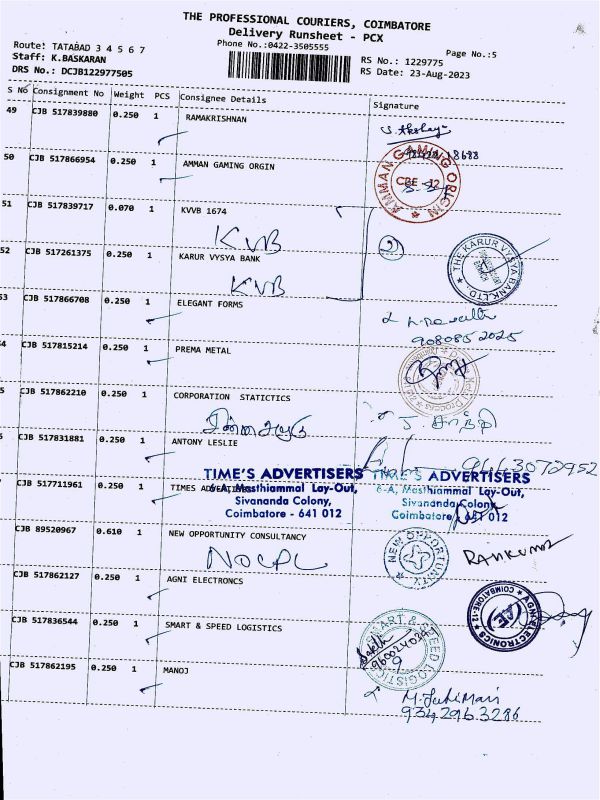 THE PROFESSIONAL COURIERS, COIMBATORE
Delivery Runsheet - PCX
Route: TATABAD 3 4 5 6 7
Phone No.:0422-3505555
Page No.:5
Staff: K.BASKARAN
RS No.: 1229775
DRS No.: DCJB122977505
RS Date: 23-Aug-2023
S No Consignment No Weight PCS Consignee Details Signature
49 CJB 517839880 0.250 1 RAMAKRISHNAN
S. Akshay
50 CJB 517866954 0.250 1 AMMAN GAMING ORGIN
AMMAN GAMING ORIGIN
CBE - 12
51 CJB 517839717 0.070 1 KVVB 1674
KVB
52 CJB 517261375 0.250 1 KARUR VYSYA BANK
KVB
THE KARUR VYSYA BANK LTD
53 CJB 517866708 0.250 1 ELEGANT FORMS
908085 2025
4 CJB 517815214 0.250 1 PREMA METAL
5 CJB 517862210 0.250 1 CORPORATION STATICTICS
சாந்தி
6 CJB 517831881 0.250 1 ANTONY LESLIE
9443072952
7 CJB 517711961 0.250 1 TIMES ADVERTISERS
TIME'S ADVERTISERS
6-A, Masthiammal Lay-Out,
Sivananda Colony,
Coimbatore - 641 012
TIME'S ADVERTISERS
6-A, Masthiammal Lay-Out,
Sivananda Colony,
Coimbatore - 641 012
CJB 89520967 0.610 1 NEW OPPORTUNITY CONSULTANCY
NOCPL
NEW OPPORTUNITY
RAMKUMAR
CJB 517862127 0.250 1 AGNI ELECTRONCS
AGNI ELECTRONICS
COIMBATORE-12
CJB 517836544 0.250 1 SMART & SPEED LOGISTICS
SMART & SPEED LOGISTICS
CJB 517862195 0.250 1 MANOJ
9342963286